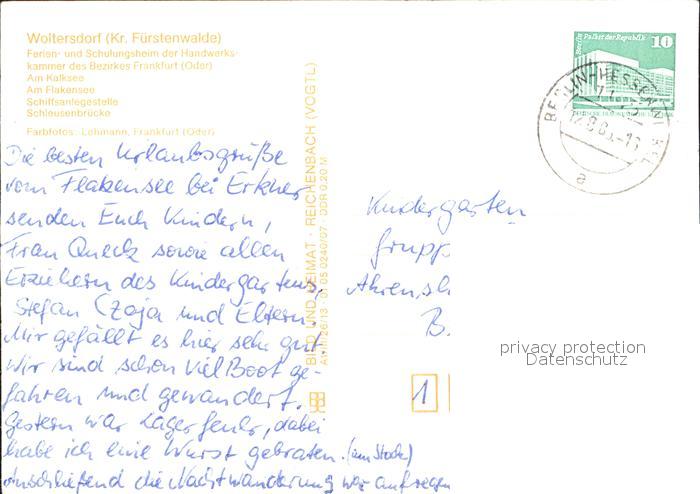 Woltersdorf (Kr. Fürstenwalde)
Ferien- und Schulungsheim der Handwerks-
kammer des Bezirkes Frankfurt (Oder)
Am Kalksee
Am Flakensee
Schiffsanlegestelle
Schleusenbrücke
Farbfotos: Lehmann, Frankfurt (Oder)
Die besten Urlaubsgrüße
vom Flakensee bei Erkner
senden Euch Kindern,
Frau Queck sowie allen
Erziehern des Kindergartens,
Stefan Czaja und Eltern.
Mir gefällt es hier sehr gut.
Wir sind schon viel Boot ge-
fahren und gewandert.
Gestern war Lagerfeuer, dabei
habe ich eine Wurst gebraten. (am Stock)
Anschließend die Nachtwanderung war aufregen
BILD UND HEIMAT · REICHENBACH (VOGTL)
DDR 0,20 M
Berlin Palast der Republik
10
BERLIN-HESSENWINKEL
a
Kindergarten
Grupp
Ahrensh
B.
1
privacy protection
Datenschutz